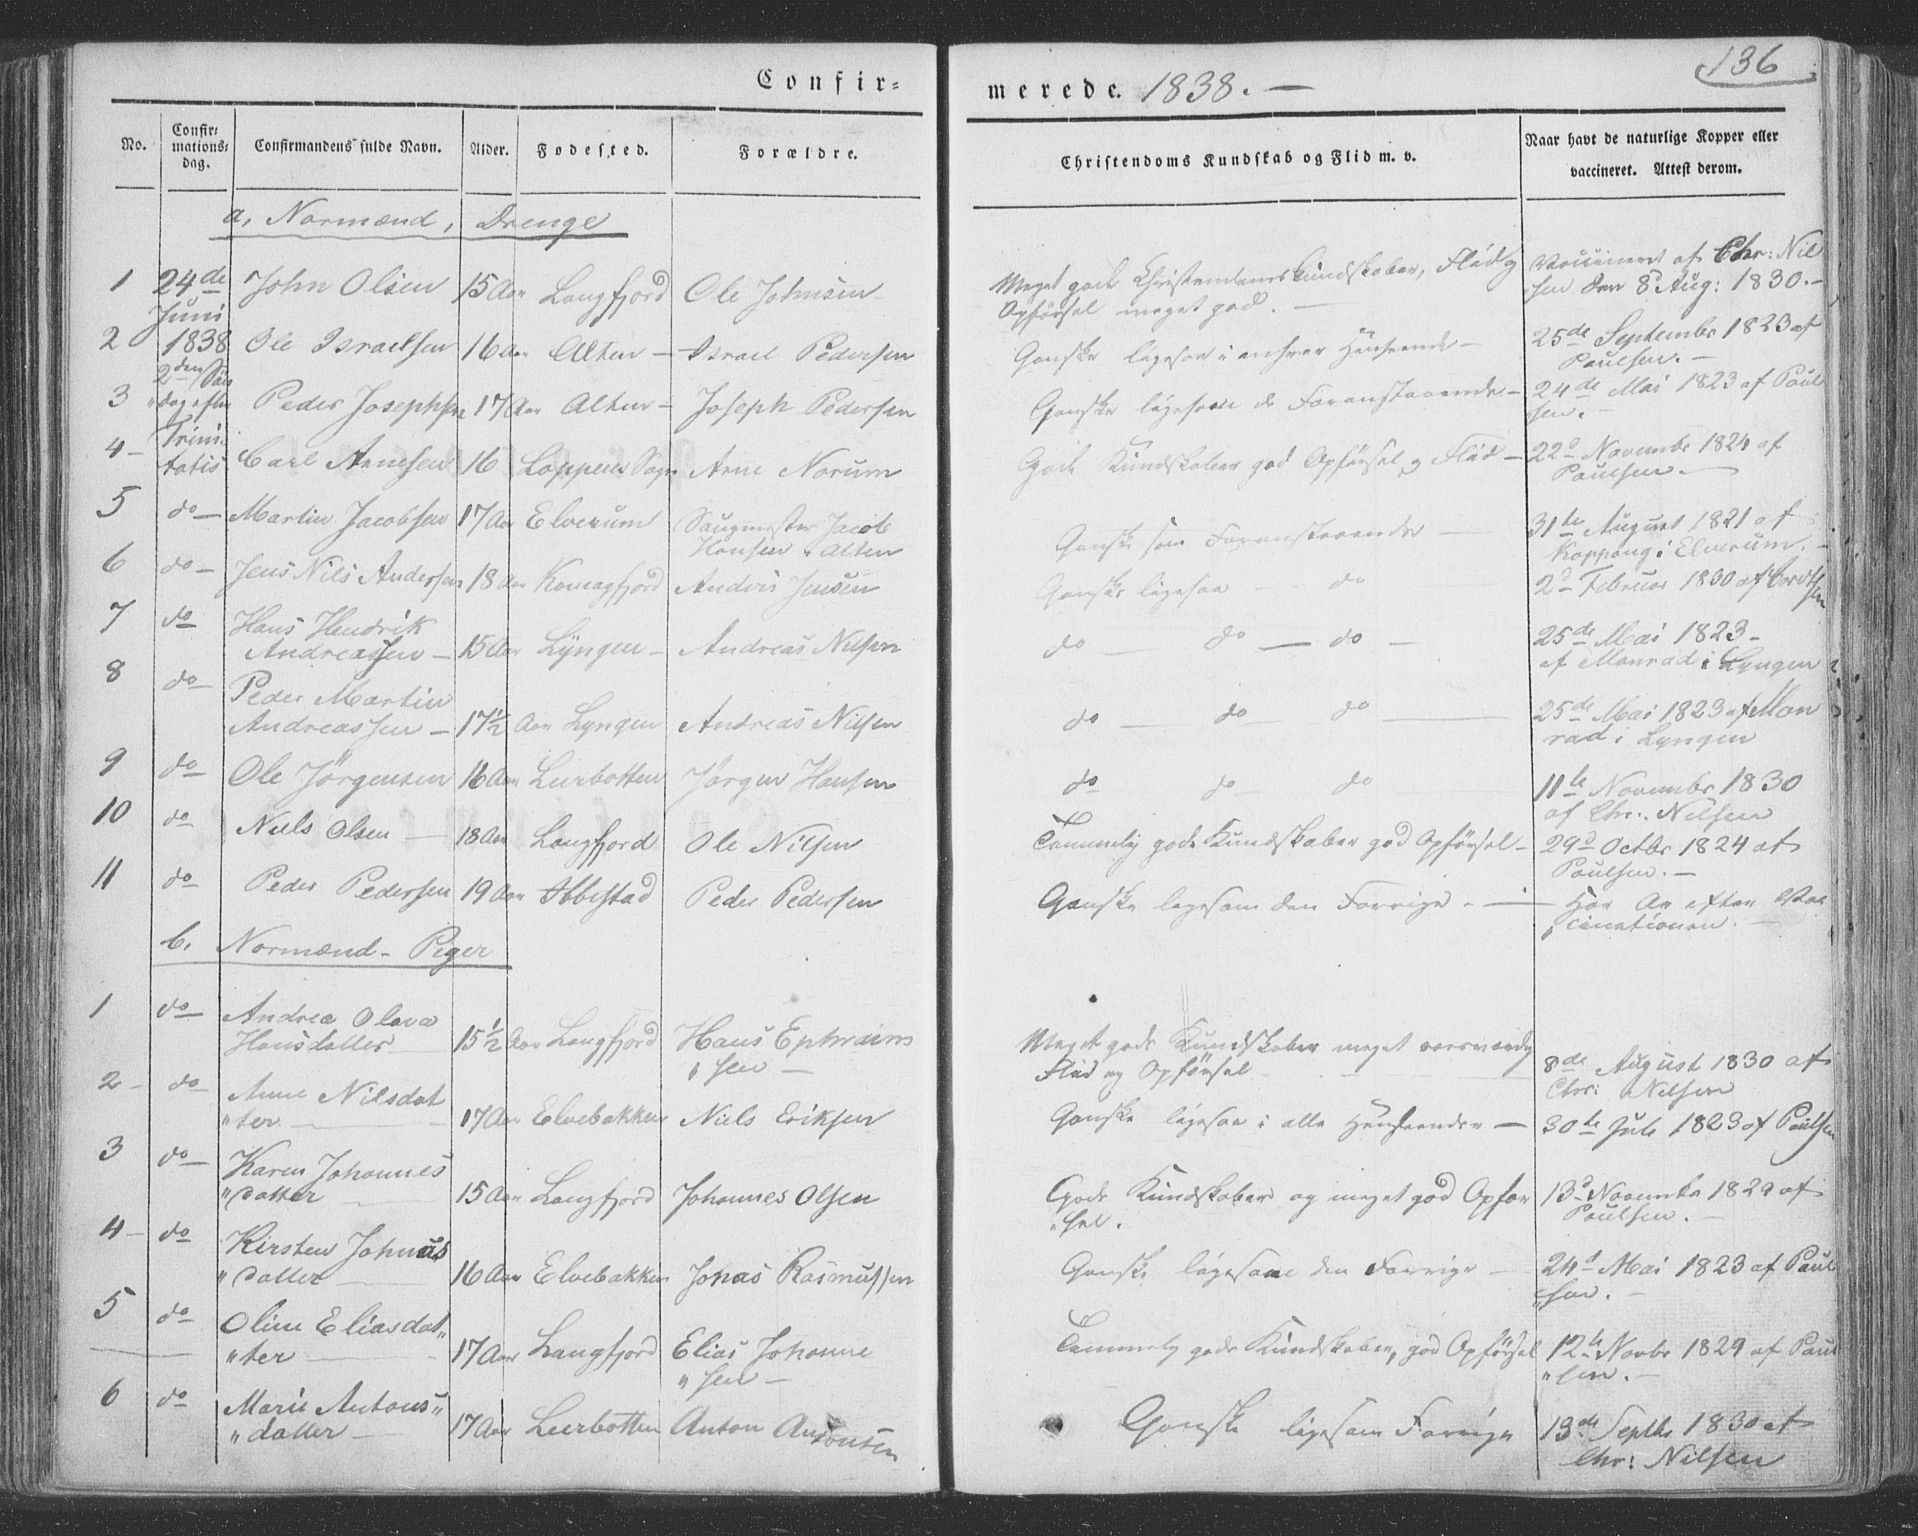 136
Confir-
merede. 1838. —
No.
Confir-
mations-
dag.
Confirmandens fulde Navn.
Alder.
Fødested.
Forældre.
Christendoms Kundskab og Flid m. v.
Naar havt de naturlige Kopper eller
vaccineret. Attest derom.
a, Normænd, Drenge
1 24de John Olsen 15 Aar Langfjord Ole Johnsen Meget gode Christendomskundskaber, Flid og Vaccineret af Chr: Nil
Juni Opførsel meget god. — sen den 8d Aug: 1830. —
2 1838 Ole Israelsen 16 Aar Alten — Israel Pedersen Ganske ligesaa i enhver Henseende — 25de Septembr 1823 af
2den Søn Paulsen. —
3 dag efter Peder Josephsen 17 Aar Alten — Joseph Pedersen Ganske ligesom de Foranstaaende — 24de Mai 1823 af Paul
Trini- sen. —
4 — tatis Carl Arnesen 16 Loppens Sogn Arne Norum Gode Kundskaber god Opførsel og Flid — 22d Novembr 1824 af
Paulsen —
5 do — Martin Jacobsen 17 Aar Elverum Saugmester Jacob 31te August 1821 af
Hansen i Alten Ganske som Foranstaaende — Koppang i Elverum. —
6 do — Jens Nils Andersen 18 Aar Komagfjord Anders Jensen Ganske ligesaa — do — 2d Februar 1830 af
7 do Hans Hendrik 25de Mai 1823 —
Andreassen — 15 Aar Lyngen — Andreas Nilsen do — do — do — af Monrad i Lyngen
8 do Peder Martin
Andreassen — 17½ Aar Lyngen Andreas Nilsen do — do — do — 25de Mai 1823 af Mon
rad i Lyngen
9 do Ole Jørgensen 16 Aar Leerbotten Jørgen Hansen do do — do — 11te Novembr 1830
af Chr: Nilsen
10 do Niels Olsen — 18 Aar Langfjord Ole Nilsen Temmelig gode Kundskaber god Opførsel — 29d Octbr 1824 af
Paulsen. —
11 do Peder Pedersen 19 Aar Ibbestad Peder Pedersen Ganske ligesom den Forrige — Har Ar efter Vac
" cinationen. —
b. Normænd - Piger
1 do Andrea Olava
Hansdatter 15½ Aar Langfjord Hans Ephraim Meget gode Kundskaber meget
" sen — Flid og Opførsel — 8de August 1830 af
Chr: Nilsen
2 — do Anne Nilsdat
" ter — 17 Aar Elvebakken Niels Eriksen Ganske ligesaa i alle Henseender — 30te Juli 1823 af Paulsen
3 do — Karen Johannes
" datter — 15 Aar Langfjord Johannes Olsen Gode Kundskaber og meget god Opfør 13d Novembr 1829 af
" sel. Paulsen. —
4 — do Kirsten Johnas
" datter — 16 Aar Elvebakken Jonas Rasmussen Ganske ligesom den Forrige — 24d Mai 1823 af Paul
" sen. —
5 do Oline Eliasdat"
" ter — 17 Aar Langfjord Elias Johanne Temmelig gode Kundskaber, god Opførsel 12te Novbr 1829 af Paul
" sen — " sen. —
6 do Marie Antons"
" datter — 17 Aar Leerbotten Anton Antonsen Ganske ligesom Forrige 13de Septbr 1830 af
Chr: Nilsen